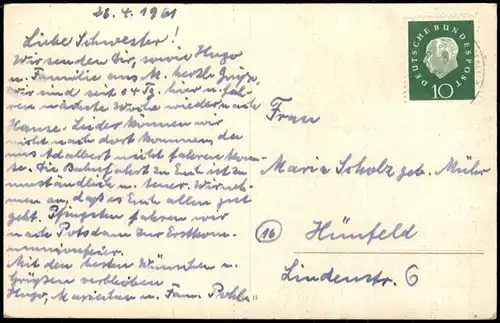 28.4.1961
Liebe Schwester!
Wir senden Dir, sowie Hugo
u. Familie aus M. herzl. Grüße,
wir sind seit 14 Tg. hier u. fah-
ren nächste Woche wieder nach
Hause. Leider können wir
nicht nach dort kommen, da
uns Adalbert nicht fahren konn-
te. Die Bahnfahrt zu Euch ist zu
umständlich u. teuer. Wir neh-
men an, daß es Euch allen gut
geht. Pfingsten fahren wir
nach Potsdam zur Erstkom-
munionfeier.
Mit den besten Wünschen u.
Grüßen verbleiben
Hugo, u. Fam.
B
DEUTSCHE BUNDESPOST
10
Frau
Maria Scholz geb.
16 Hünfeld
Lindenstr. 6